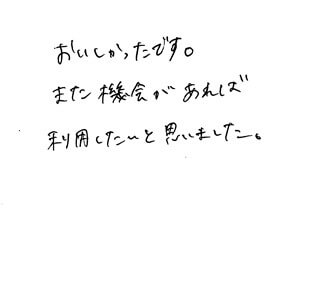 おいしかったです。
また機会があれば
利用したいと思いました。